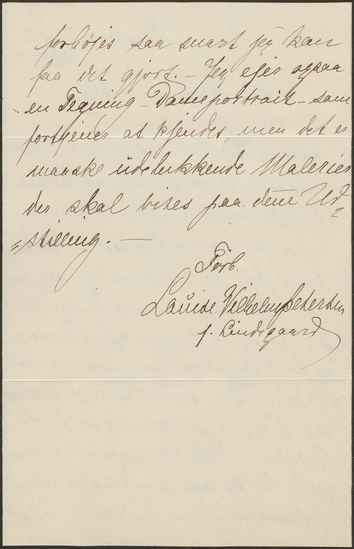 forhøjes saa snart jeg kan
faa det gjort. – Jeg ejer ogsaa
en Tegning – Dameportrait – som
fortjener at kjendes, men det er
maaske udelukkende Malerier
der skal vises paa denne Ud=
=stilling. –
Forb.
Louise Vilhelm Petersen
f. Lindegaard